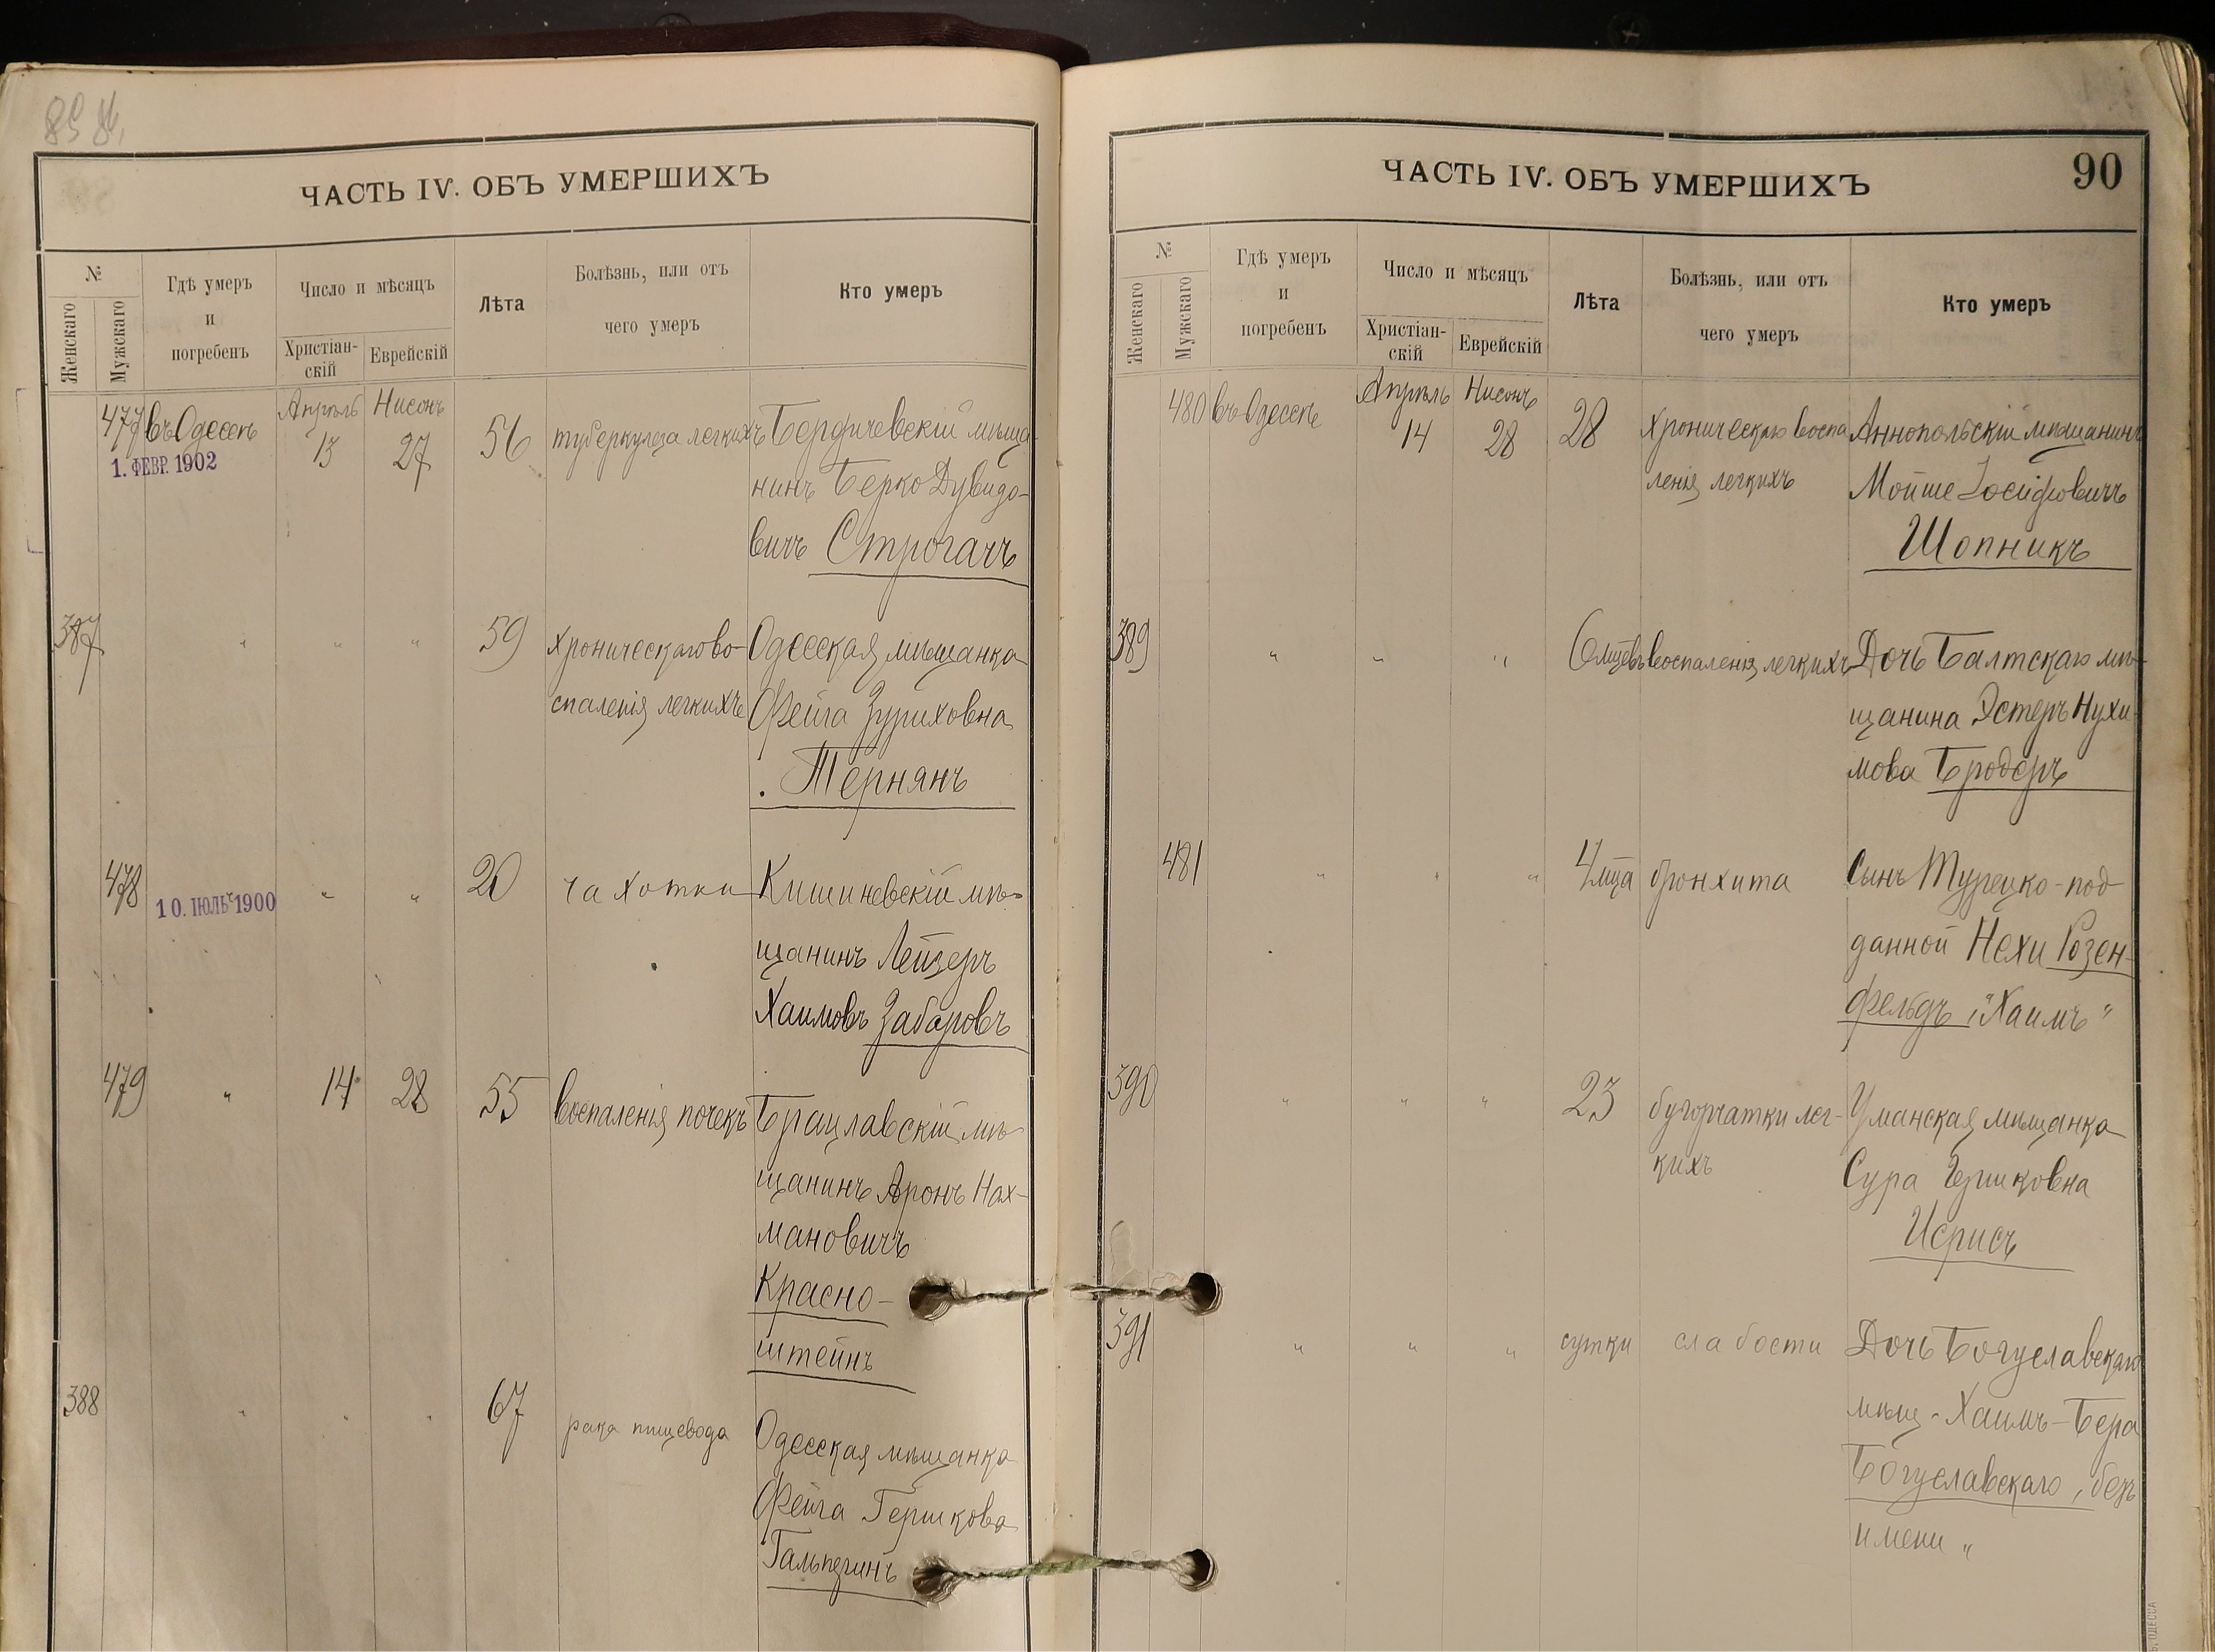 ЧАСТЬ IV. ОБЪ УМЕРШИХЪ
№
Женскаго
Мужскаго
Гдѣ умеръ
и
погребенъ
Число и мѣсяцъ
Христіан-
скій
Еврейскій
Лѣта
Болѣзнь, или отъ
чего умеръ
Кто умеръ
477 въ Одессѣ Апрѣль 13 Нисонъ 27 56 туберкулеза легкихъ Бердичевскій мѣща-
1. ФЕВР. 1902
нинъ Берко Дувидо-
вичъ Строгачъ
387 " " " 59 хроническаго во- Одесская мѣщанка
спаленія легкихъ Фейга Зуриховна
Тернянъ
478 " " 20 чахотки Кишиневскій мѣ-
10. ІЮЛЬ 1900
щанинъ Лейзеръ
Хаимовъ Забаровъ
479 " 14 28 55 воспаленія почекъ Брацлавскій мѣ-
щанинъ Аронъ Нах-
мановичъ
Красно-
штейнъ
388 " " " 67 рака пищевода Одесская мѣщанка
Фейга Гершкова
Гальперинъ
ЧАСТЬ IV. ОБЪ УМЕРШИХЪ
90
№
Женскаго
Мужскаго
Гдѣ умеръ
и
погребенъ
Число и мѣсяцъ
Христіан-
скій
Еврейскій
Лѣта
Болѣзнь, или отъ
чего умеръ
Кто умеръ
480 въ Одессѣ Апрѣль 14 Нисонъ 28 28 хроническаго воспа Аннопольскій мѣщанинъ
ленія легкихъ Мойше Іосифовичъ
Шопникъ
389 " " " 6 мцевъ воспаленія легкихъ Дочь Балтскаго мѣ-
щанина Эстеръ Нухи-
мова Бродеръ
481 " " " 4 мца бронхита Сынъ Турецко-под
данной Нехи Розен-
фельдъ, "Хаимъ"
390 " " " 23 бугорчатки лег- Уманская мѣщанка
кихъ Сура Гершковна
Исрисъ
391 " " " сутки слабости Дочь Богуславскаго
мѣщ- Хаимъ-Бера
Богуславскаго, безъ
имени "